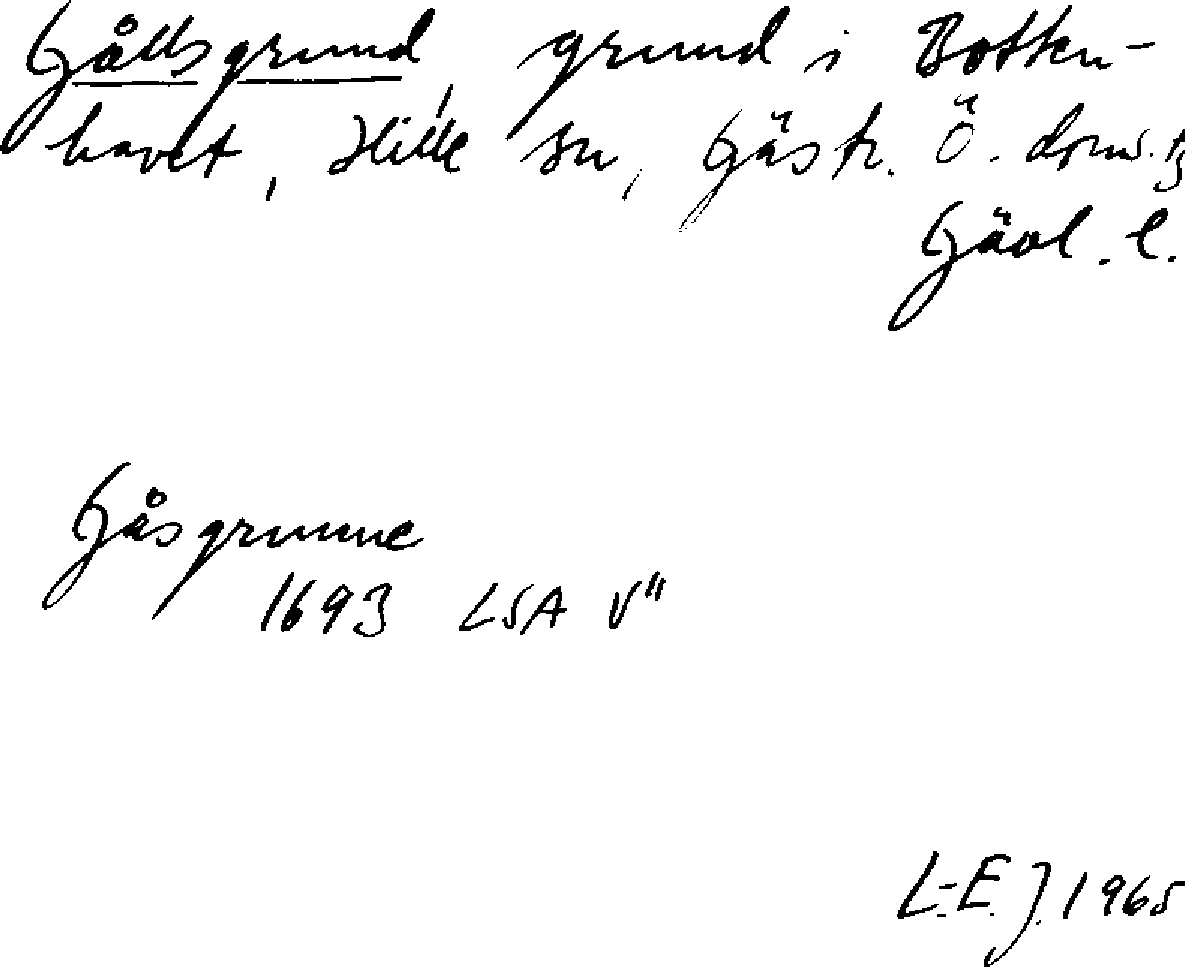 Gållsgrund, grund i Botten-
havet, Hille sn, Gästr. Ö. doms.
Gävl. l.
Gåsgrunne
1693 LSA V"
L-E J. 1965